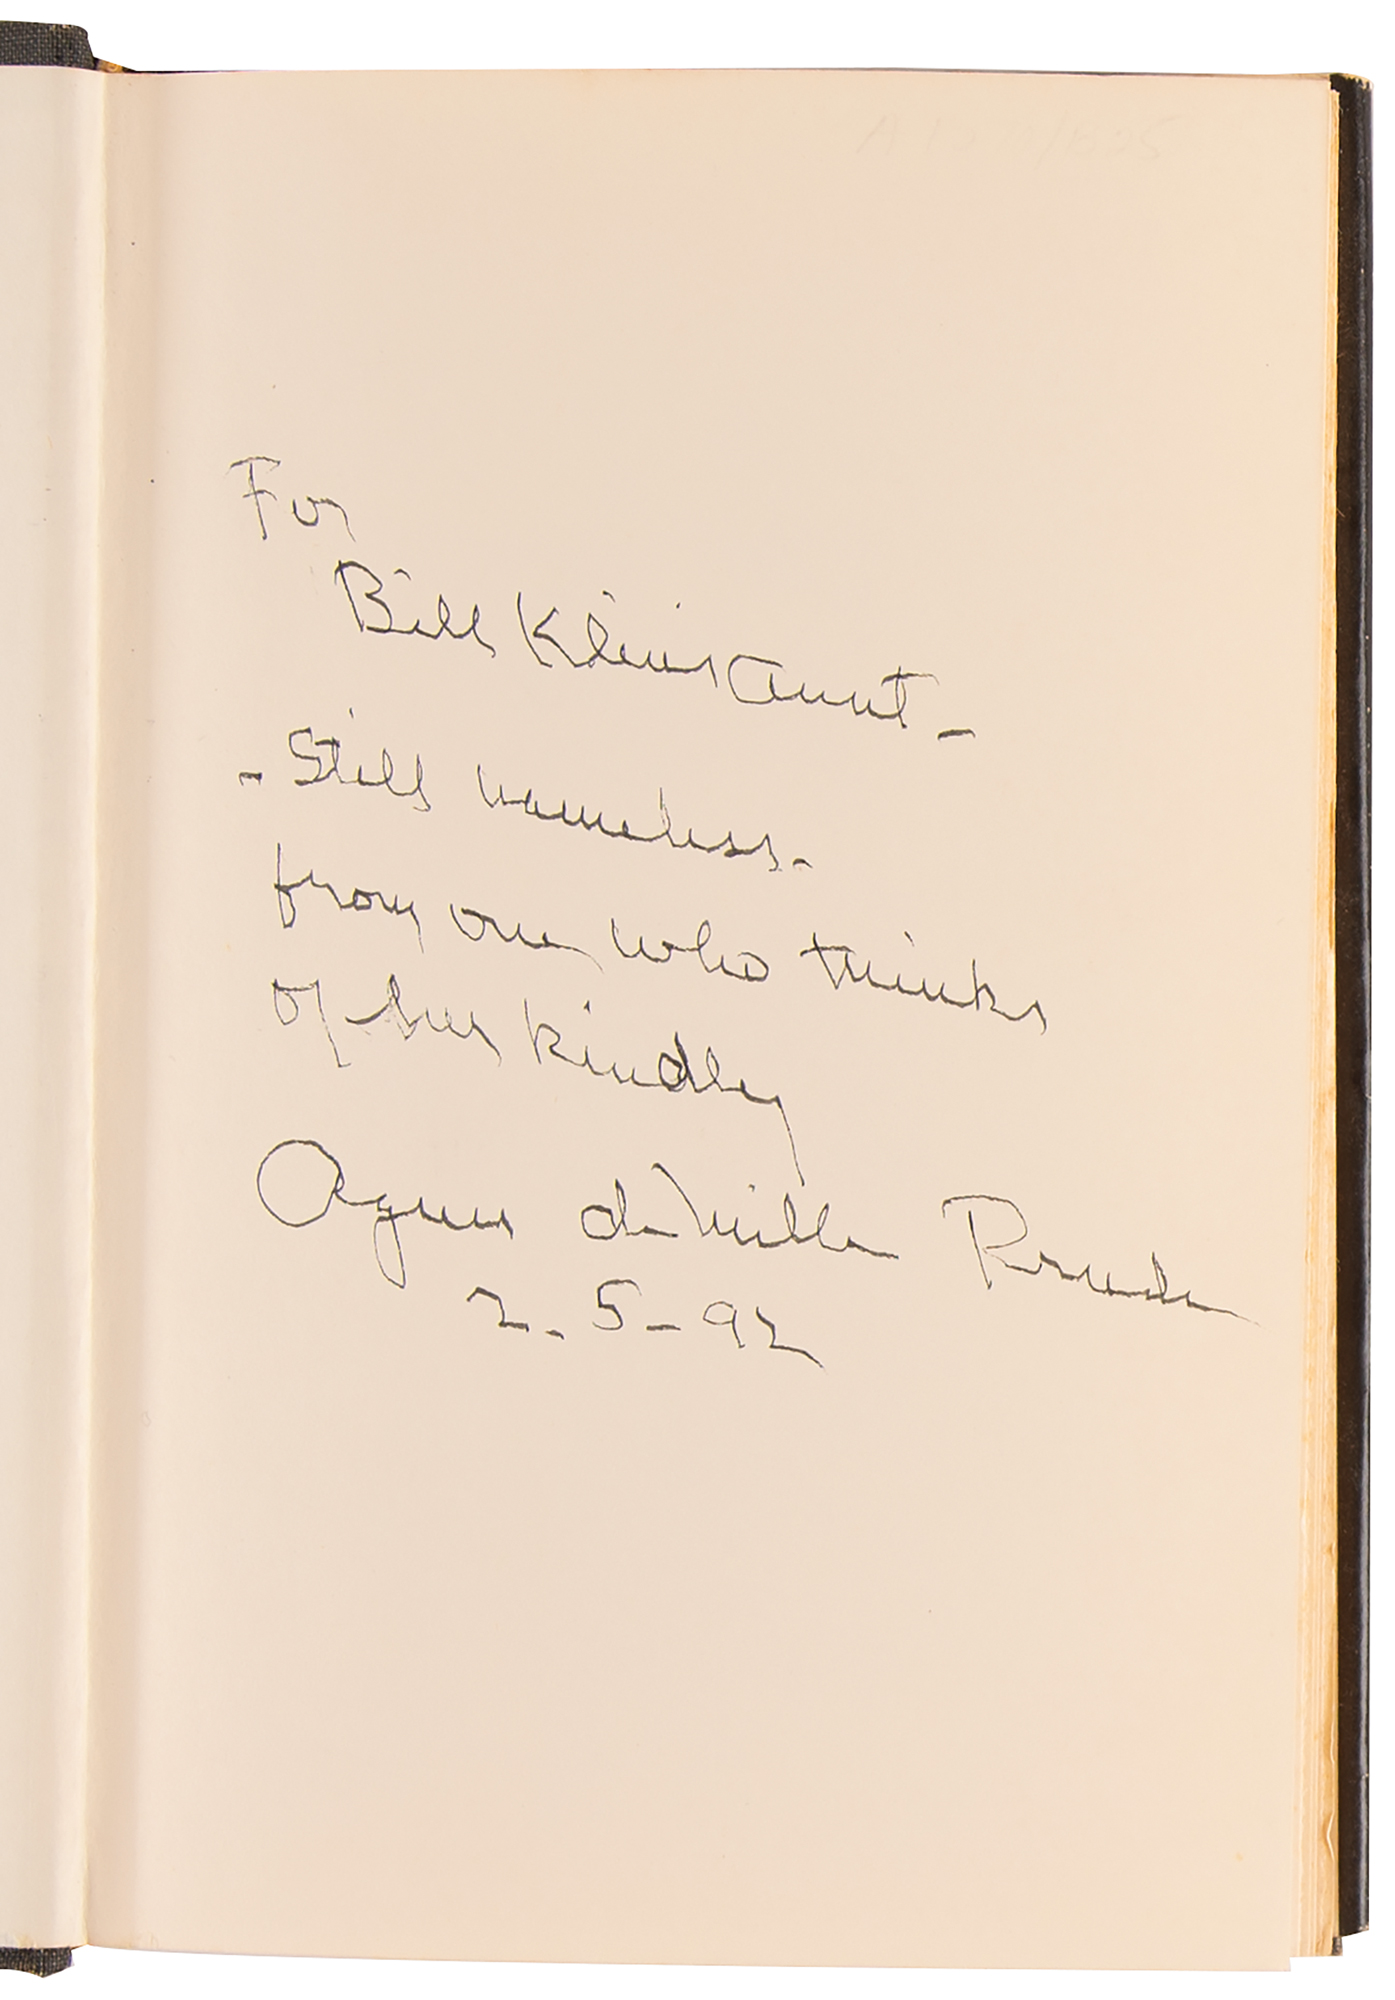 For
Bill Klein's aunt -
- Still nameless -
from one who thinks
of her kindly
Agnes deMille Prude
2. 5 - 92